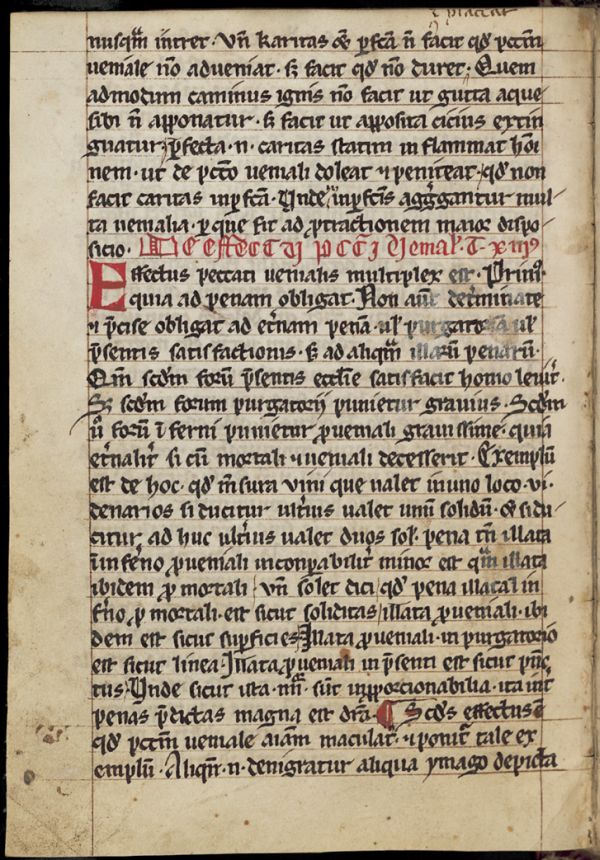 placeat
nusqͣm intret · Vn̄ karitas &̄ ꝑfcā n̄ facit qđ pcc̄m
ueniale nō adueniat · sꝫ facit qđ nō duret · Quem
admodum caminus ignis nō facit ut gutta aque
sibi n̄ apponatur · sꝫ facit ut apposita cicius extin
guatur · ꝑfecta · n · caritas statim in flammat hoī
nem · ut de pccō ueniali doleat ⁊ peniteat · qđ non
facit caritas inꝑfcā · Vnde inꝑfcīs agḡgantur mul
ta uenialia · ꝑ que fit ad ꝓtractionem maior dispo
sicio · De effectu pcc̄i uenial̕ · T · xiii
Effectus peccati uenialis multiplex est · Prim̕ ·
quia ad penam obligat · Non aūt det̄minate
⁊ p̄cise obligat ad et̄nam penā · ul̕ purgatoriā ul̕
p̄sentis satisfactionis · sꝫ ad aliqͣm illarū penarū ·
Qm̄ scđm forū p̄sentis eccl̄ie satisfacit homo leuit̕ ·
Sꝫ scđm forum purgatorij punietur grauius · Scđm
ū forū īferni punietur ꝓ ueniali grauissime · quia
et̄nalit̕ si cū mortali ⁊ ueniali decesserit · Exemplū
est de hoc · qđ m̄sura vini que ualet in uno loco · vi ·
denarios si ducitur ult̄ius ualet unū solidū · & si du
citur ad huc ult̄ius ualet duos sol̕ · pena tn̄ illata
in īfērno ꝓ ueniali inconꝑabilit̕ minor est qͣm illata
ibidem ꝓ mortali · vn̄ solet dici · qđ pena illata in
īf̄no ꝓ mortali · est sicut soliditas illata ꝓ ueniali · ibi
dem est sicut suꝑficies · Illata ꝓ ueniali · in purgatorio
est sicut linea · Illata ꝓ ueniali in p̄senti est sicut pūc
tus · Vnde sicut ista · nͣ · sūt inꝓporcionabilia · ita int̕
penas p̄dictas magna est dr̄a · ¶ Scđs effectus ē
qđ pcc̄m ueniale aīam maculat · ⁊ ponit̕ tale ex
emplū · Aliqn̄ · n · denigratur aliqua ymago depicta